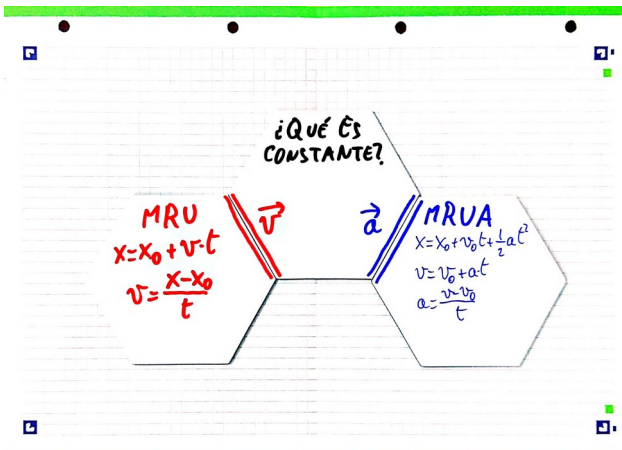 ¿QUÉ ES
CONSTANTE?
MRU
x=x₀+v·t
v=\frac{x-x₀}{t}
\vec{v}
\vec{a}
MRUA
x=x₀+v₀t+\frac{1}{2}at²
v=v₀+a·t
a=\frac{v-v₀}{t}